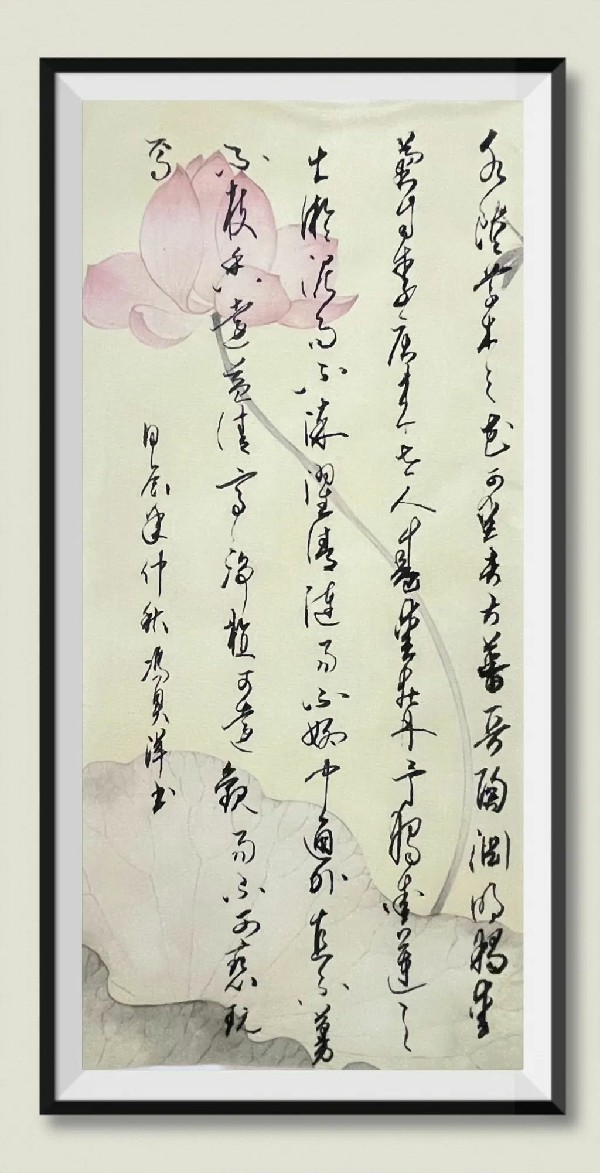 水陸草木之花可愛者甚蕃晉陶淵明獨愛
菊自李唐来世人甚愛牡丹予獨愛蓮之
出淤泥而不染濯清漣而不妖中通外直不蔓
不枝香遠益清亭亭淨植可遠觀而不可褻玩
焉
甲辰年仲秋馮洋书